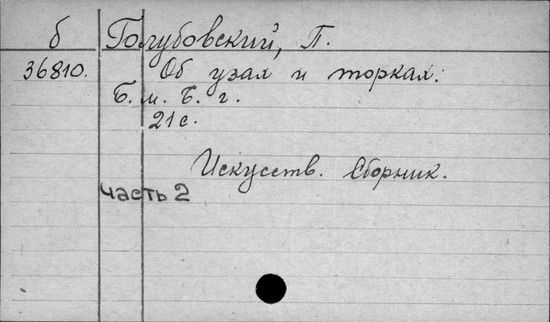 б Голубовский, П.
36810. Об узах и торках.
Б. м. Б. г.
21 с.
Искусств. Сборник.
часть 2